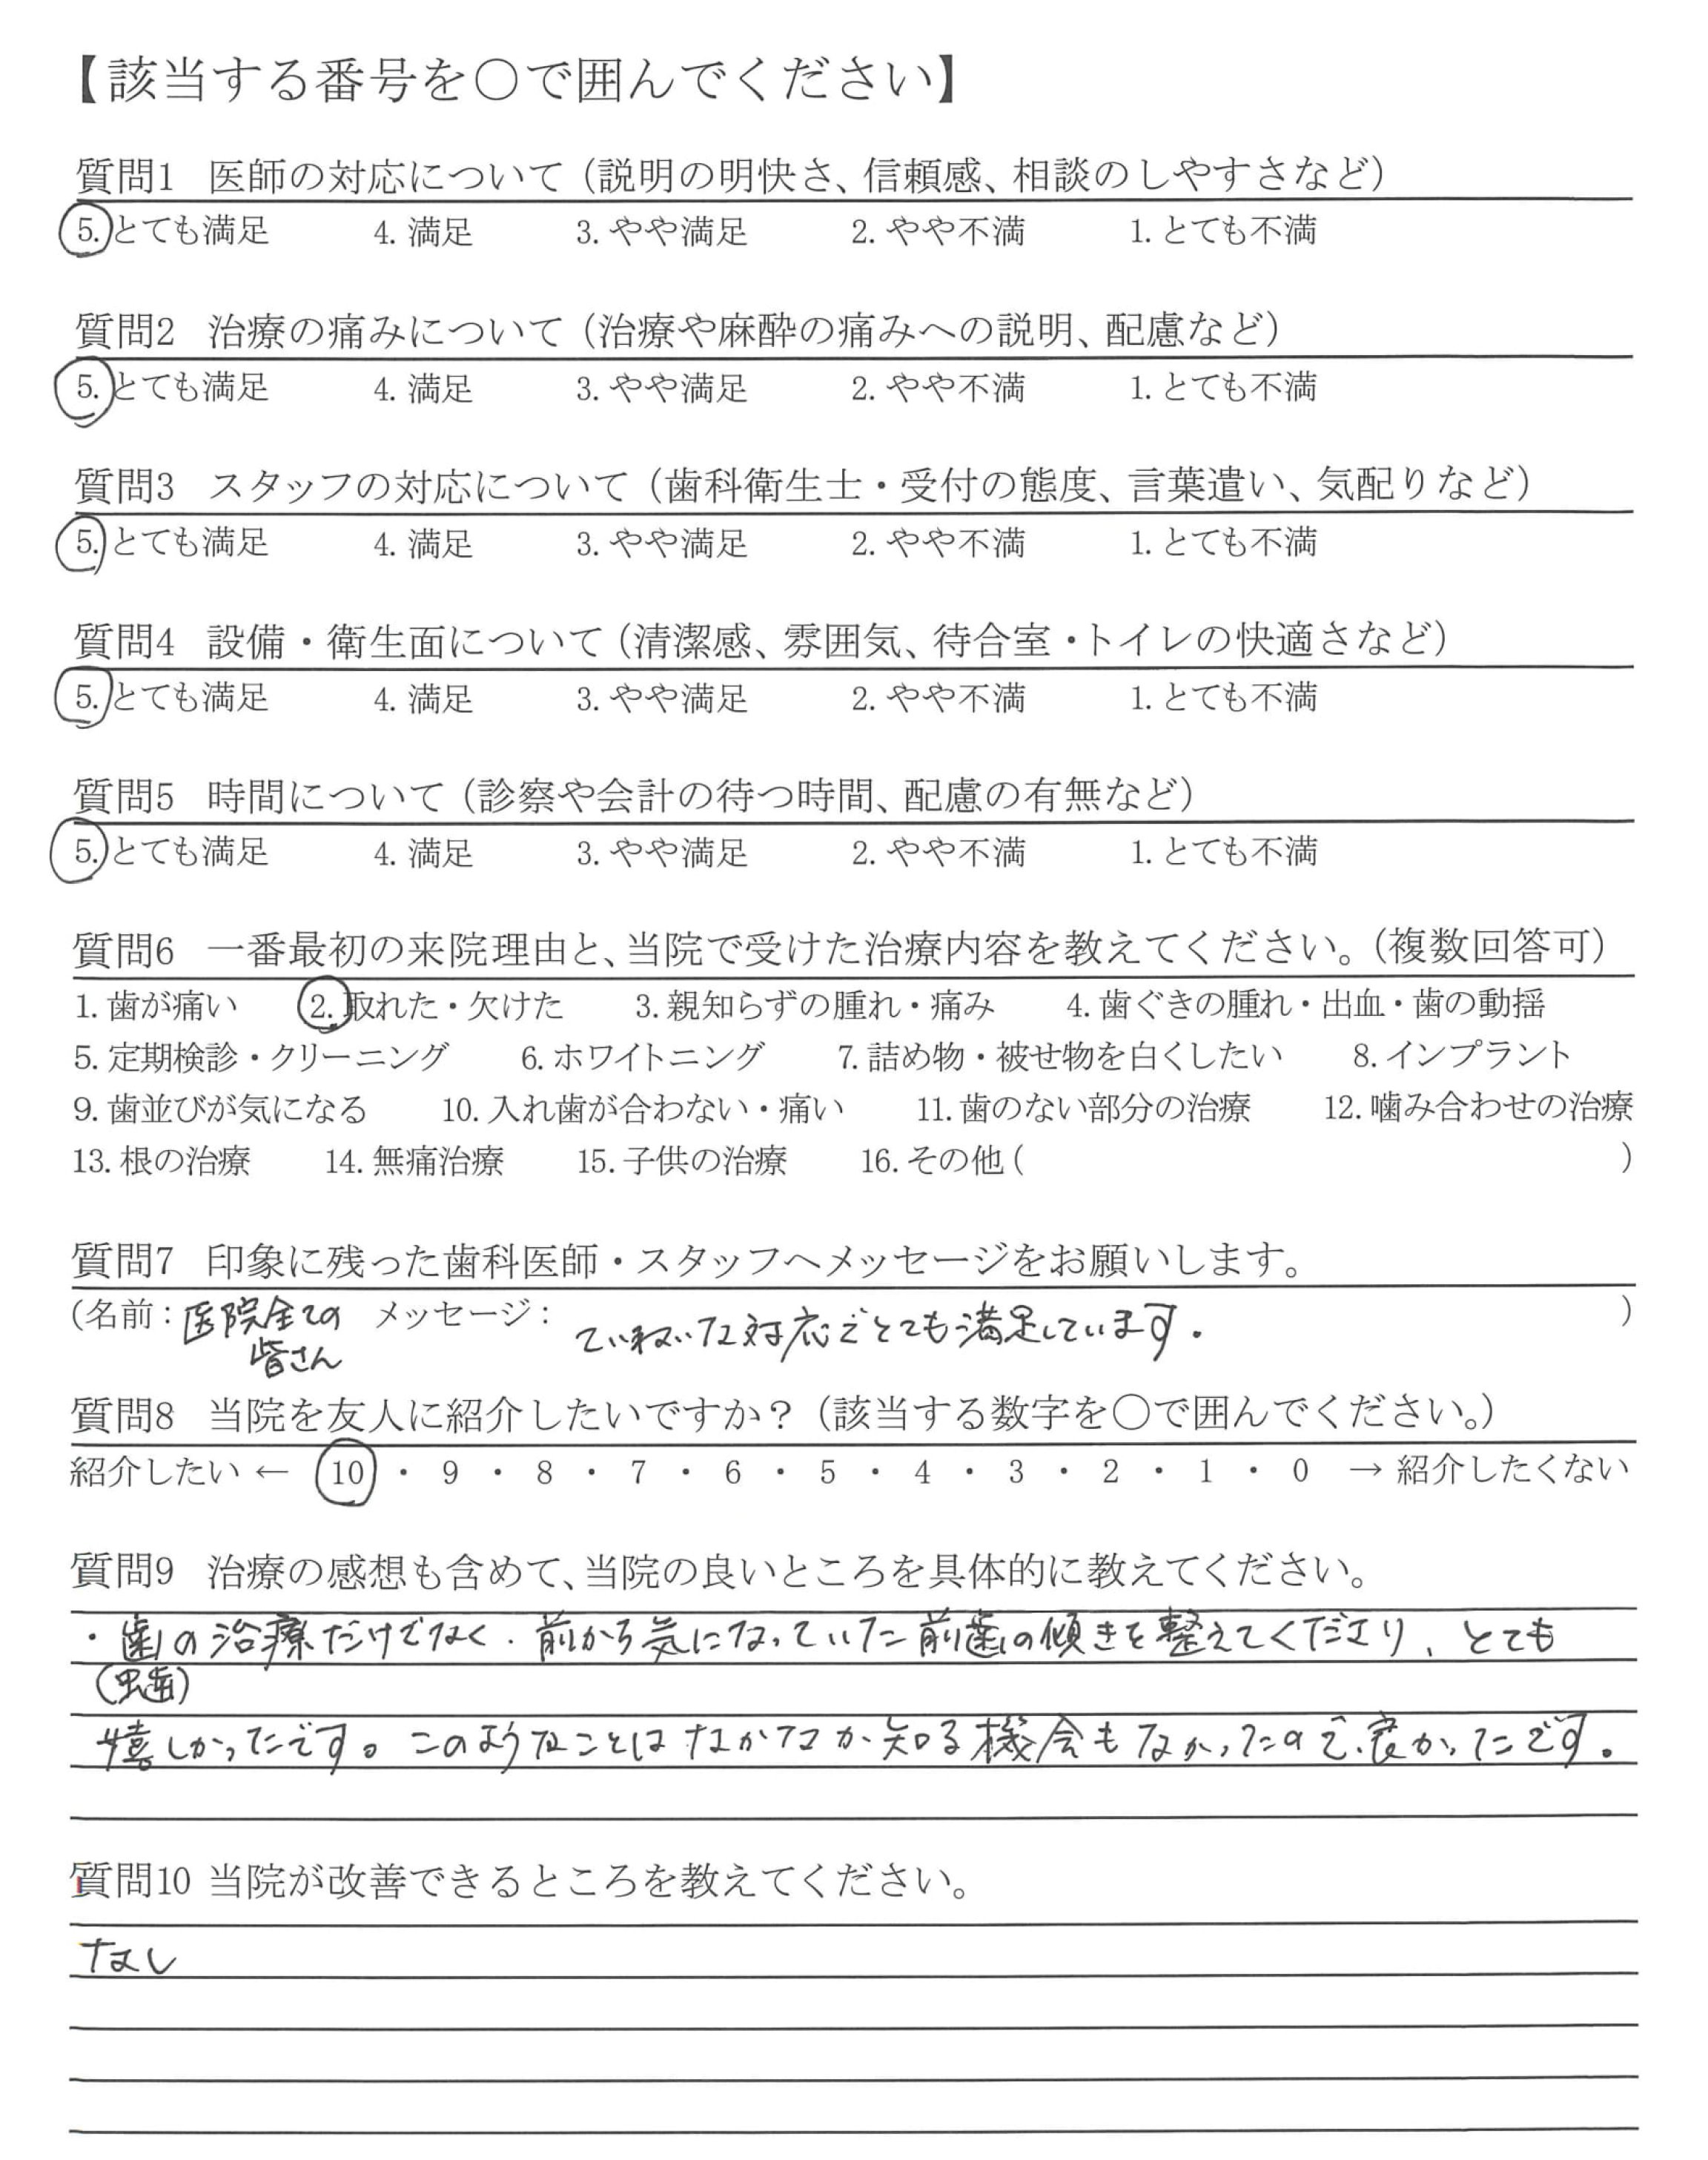 【該当する番号を〇で囲んでください】
質問1 医師の対応について（説明の明快さ、信頼感、相談のしやすさなど）
5. とても満足 4. 満足 3. やや満足 2. やや不満 1. とても不満
質問2 治療の痛みについて（治療や麻酔の痛みへの説明、配慮など）
5. とても満足 4. 満足 3. やや満足 2. やや不満 1. とても不満
質問3 スタッフの対応について（歯科衛生士・受付の態度、言葉遣い、気配りなど）
5. とても満足 4. 満足 3. やや満足 2. やや不満 1. とても不満
質問4 設備・衛生面について（清潔感、雰囲気、待合室・トイレの快適さなど）
5. とても満足 4. 満足 3. やや満足 2. やや不満 1. とても不満
質問5 時間について（診察や会計の待つ時間、配慮の有無など）
5. とても満足 4. 満足 3. やや満足 2. やや不満 1. とても不満
質問6 一番最初の来院理由と、当院で受けた治療内容を教えてください。（複数回答可）
1. 歯が痛い 2. 取れた・欠けた 3. 親知らずの腫れ・痛み 4. 歯ぐきの腫れ・出血・歯の動揺
5. 定期検診・クリーニング 6. ホワイトニング 7. 詰め物・被せ物を白くしたい 8. インプラント
9. 歯並びが気になる 10. 入れ歯が合わない・痛い 11. 歯のない部分の治療 12. 噛み合わせの治療
13. 根の治療 14. 無痛治療 15. 子供の治療 16. その他（ ）
質問7 印象に残った歯科医師・スタッフへメッセージをお願いします。
（名前：医院全ての メッセージ： ていねいな対応でとても満足しています. ）
皆さん
質問8 当院を友人に紹介したいですか？（該当する数字を〇で囲んでください。）
紹介したい ← 10 ・ 9 ・ 8 ・ 7 ・ 6 ・ 5 ・ 4 ・ 3 ・ 2 ・ 1 ・ 0 → 紹介したくない
質問9 治療の感想も含めて、当院の良いところを具体的に教えてください。
・歯の治療だけでなく、前から気になっていた前歯の傾きを整えてくださり、とても
（虫歯）
嬉しかったです。このようなことはなかなか知る機会もなかったので、良かったです。
質問10 当院が改善できるところを教えてください。
なし